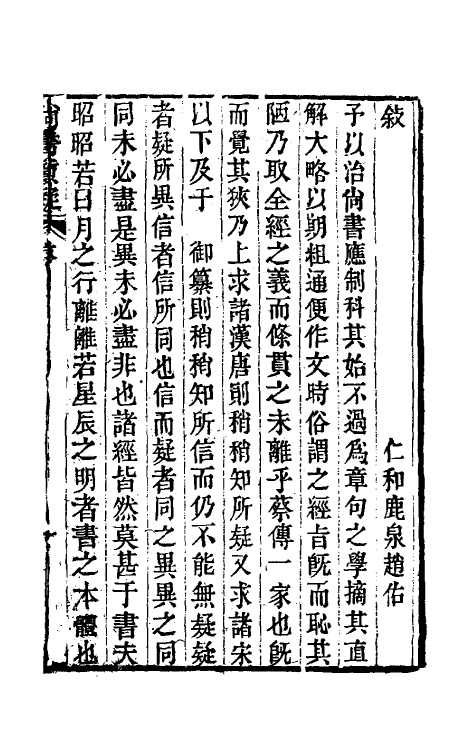 敍
仁和鹿泉趙佑
予以治尙書應制科其始不過爲章句之學摘其直
解大略以期粗通便作文時俗謂之經旨旣而恥其
陋乃取全經之義而條貫之未離乎蔡傳一家也旣
而覺其狹乃上求諸漢唐則稍稍知所疑又求諸宋
以下及于　御纂則稍稍知所信而仍不能無疑疑
者疑所異信者信所同也信而疑者同之異異之同
同未必盡是異未必盡非也諸經皆然莫甚于書夫
昭昭若日月之行離離若星辰之明者書之本體也